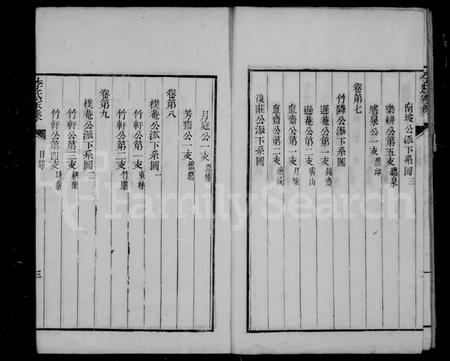 南坡公派下系圖三
樂耕公第五支聽泉
嗜泉公一支
卷第七
竹隣公派下系圖
遯菴公一支鈍齋
遯菴公第二支
直齋公第一支月
直齋公第二支
後莊公派下系圖
月庭公一支
芳齋公一支
卷第八
樸菴公派下系圖一
竹軒公第一支東林
竹軒公第二支竹廬
卷第九
樸菴公派下系圖二
竹軒公第三支耕樂
竹軒公第四支
目錄
三
FamilySearch